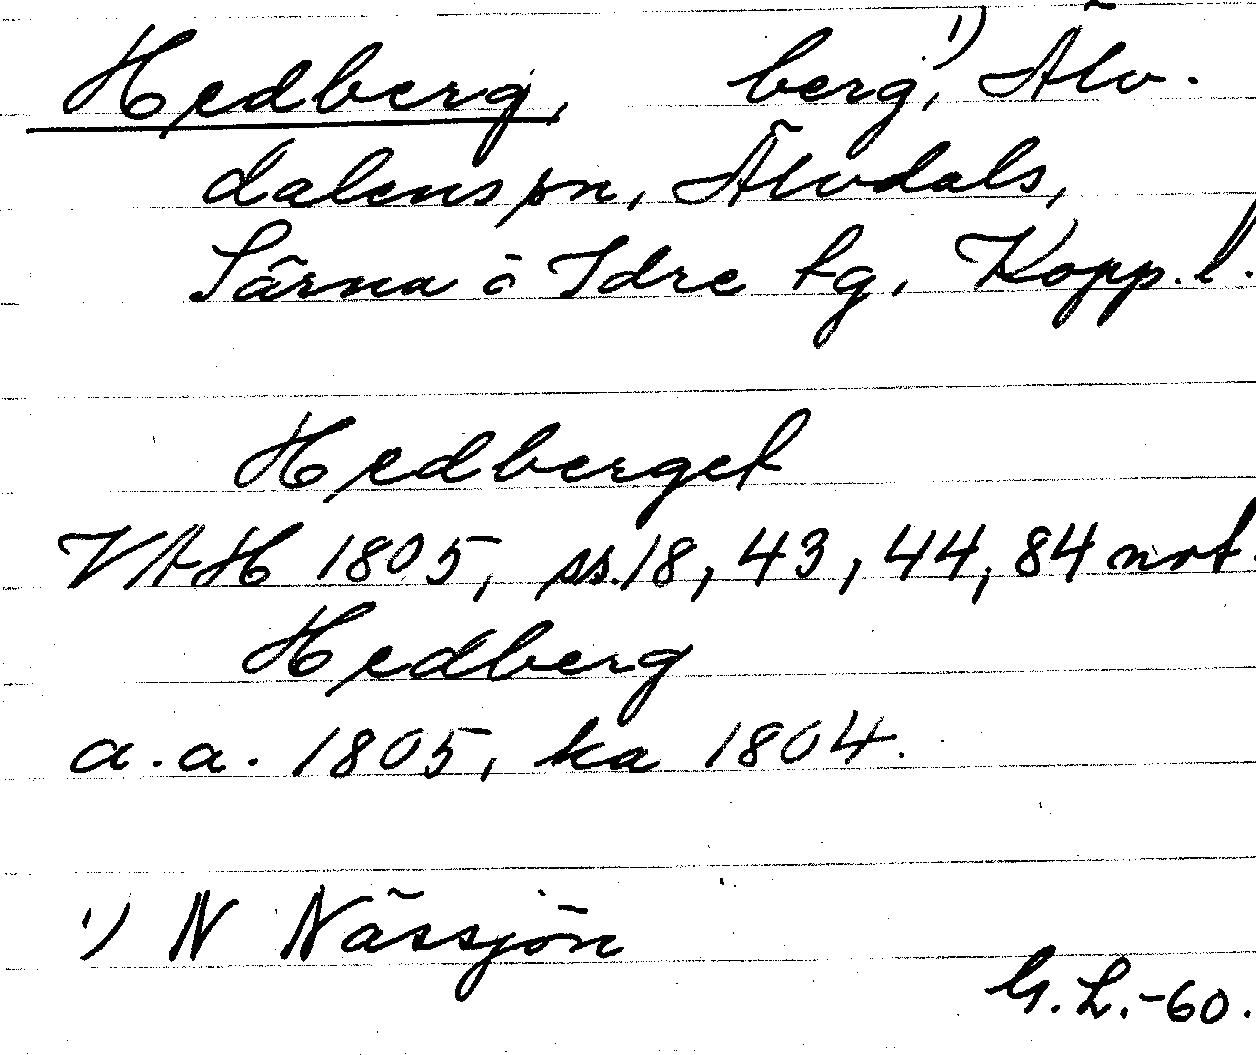 Hedberg, berg,¹) Älv-
dalens sn, Älvdals,
Särna o Idre tg, Kopp. l.
Hedberget
VAH 1805, ss. 18, 43, 44, 84 not.
Hedberg
a. a. 1805, ka 1804.
¹) N Nässjön
G. L. -60.